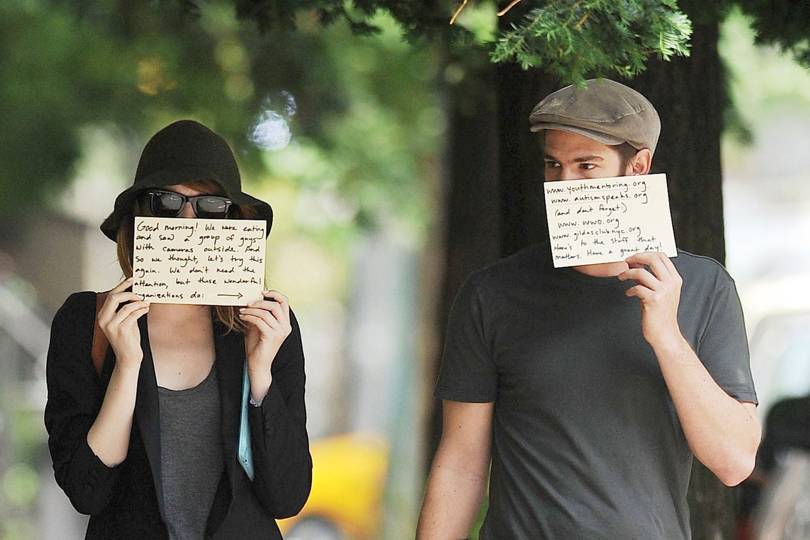 Good morning! We were eating
and saw a group of guys
with cameras outside. And
so we thought, let's try this
again. We don't need the
attention, but these wonderful
organizations do: →
www.youthmentoring.org
www.autismspeaks.org
(and don't forget)
www.wwo.org
www.gildasclubnyc.org
Here's to the stuff that
matters. Have a great day!